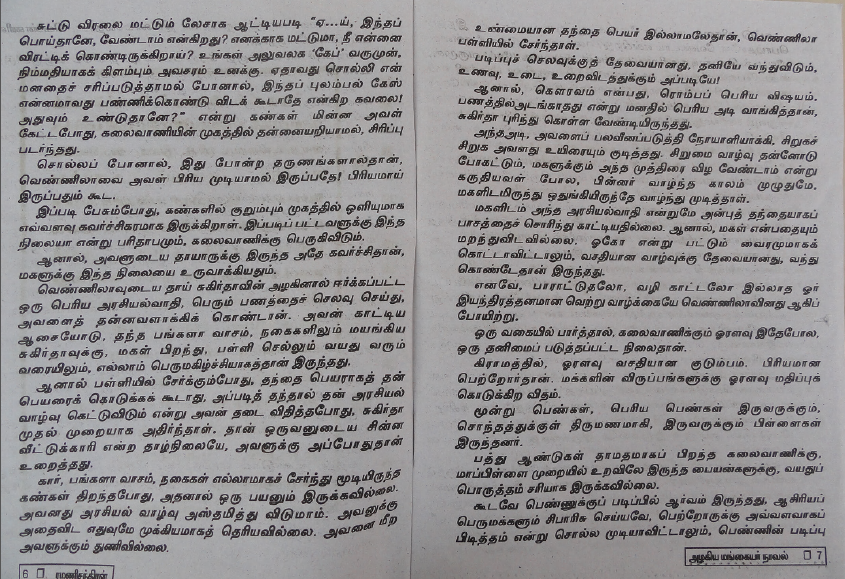 சுட்டு விரலை மட்டும் லேசாக ஆட்டியபடி "ஏ...ய், இந்தப்
பொய்தானே, வேண்டாம் என்கிறது? எனக்காக மட்டுமா, நீ என்னை
விரட்டிக் கொண்டிருக்கிறாய்? உங்கள் அலுவலக 'கேப்' வருமுன்,
நிம்மதியாகக் கிளம்பும் அவசரம் உனக்கு. ஏதாவது சொல்லி என்
மனதைச் சரிப்படுத்தாமல் போனால், இந்தப் புலம்பல் கேஸ்
என்னமாவது பண்ணிக்கொண்டு விடக் கூடாதே என்கிற கவலை!
அதுவும் உண்டுதானே?" என்று கண்கள் மின்ன அவள்
கேட்டபோது, கலைவாணியின் முகத்தில் தன்னையறியாமல், சிரிப்பு
படர்ந்தது.
சொல்லப் போனால், இது போன்ற தருணங்களால்தான்,
வெண்ணிலாவை அவள் பிரிய முடியாமல் இருப்பதே! பிரியமாய்
இருப்பதும் கூட.
இப்படி பேசும்போது, கண்களில் குறும்பும் முகத்தில் ஒளியுமாக
எவ்வளவு கவர்ச்சிகரமாக இருக்கிறாள். இப்படிப் பட்டவளுக்கு இந்த
நிலையா என்று பரிதாபமும், கலைவாணிக்கு பெருகிவிடும்.
ஆனால், அவளுடைய தாயாருக்கு இருந்த அதே கவர்ச்சிதான்,
மகளுக்கு இந்த நிலையை உருவாக்கியதும்.
வெண்ணிலாவுடைய தாய் சுகிர்தாவின் அழகினால் ஈர்க்கப்பட்ட
ஒரு பெரிய அரசியல்வாதி, பெரும் பணத்தைச் செலவு செய்து,
அவளைத் தன்னவளாக்கிக் கொண்டான். அவன் காட்டிய
ஆசையோடு, தந்த பங்களா வாசம், நகைகளிலும் மயங்கிய
சுகிர்தாவுக்கு, மகள் பிறந்து, பள்ளி செல்லும் வயது வரும்
வரையிலும், எல்லாம் பெருமகிழ்ச்சியாகத்தான் இருந்தது.
ஆனால் பள்ளியில் சேர்க்கும்போது, தந்தை பெயராகத் தன்
பெயரைக் கொடுக்கக் கூடாது, அப்படித் தந்தால் தன் அரசியல்
வாழ்வு கெட்டுவிடும் என்று அவன் தடை விதித்தபோது, சுகிர்தா
முதல் முறையாக அதிர்ந்தாள். தான் ஒருவனுடைய சின்ன
வீட்டுக்காரி என்ற தாழ்நிலையே, அவளுக்கு அப்போதுதான்
உறைத்தது.
கார், பங்களா வாசம், நகைகள் எல்லாமாகச் சேர்ந்து மூடியிருந்த
கண்கள் திறந்தபோது, அதனால் ஒரு பயனும் இருக்கவில்லை.
அவனது அரசியல் வாழ்வு அஸ்தமித்து விடுமாம். அவனுக்கு
அதைவிட எதுவுமே முக்கியமாகத் தெரியவில்லை. அவனை மீற
அவளுக்கும் துணிவில்லை.
6 ரமணிசந்திரன்
உண்மையான தந்தை பெயர் இல்லாமலேதான், வெண்ணிலா
பள்ளியில் சேர்ந்தாள்.
படிப்புச் செலவுக்குத் தேவையானது, தனியே வந்துவிடும்,
உணவு, உடை, உறைவிடத்துக்கும் அப்படியே!
ஆனால், கௌரவம் என்பது, ரொம்பப் பெரிய விஷயம்.
பணத்தில்அடங்காதது என்று மனதில் பெரிய அடி வாங்கித்தான்,
சுகிர்தா புரிந்து கொள்ள வேண்டியிருந்தது.
அந்தஅடி, அவளைப் பலவீனப்படுத்தி நோயாளியாக்கி, சிறுகச்
சிறுக அவளது உயிரையும் குடித்தது. சிறுமை வாழ்வு தன்னோடு
போகட்டும், மகளுக்கும் அந்த முத்திரை விழ வேண்டாம் என்று
கருதியவள் போல, பின்னர் வாழ்ந்த காலம் முழுதுமே,
மகளிடமிருந்து ஒதுங்கியிருந்தே வாழ்ந்து முடித்தாள்.
மகளிடம் அந்த அரசியல்வாதி என்றுமே அன்புத் தந்தையாகப்
பாசத்தைச் சொரிந்து காட்டியதில்லை. ஆனால், மகள் என்பதையும்
மறந்துவிடவில்லை. ஓகோ என்று பட்டும் வைரமுமாகக்
கொட்டாவிட்டாலும், வசதியான வாழ்வுக்கு தேவையானது, வந்து
கொண்டேதான் இருந்தது.
எனவே, பாராட்டுதலோ, வழி காட்டலோ இல்லாத ஓர்
இயந்திரத்தனமான வெற்று வாழ்க்கையே வெண்ணிலாவினது ஆகிப்
போயிற்று.
ஒரு வகையில் பார்த்தால், கலைவாணிக்கும் ஓரளவு இதேபோல,
ஒரு தனிமைப் படுத்தப்பட்ட நிலைதான்.
கிராமத்தில், ஓரளவு வசதியான குடும்பம். பிரியமான
பெற்றோர்தான். மக்களின் விருப்பங்களுக்கு ஓரளவு மதிப்புக்
கொடுக்கிற விதம்.
மூன்று பெண்கள், பெரிய பெண்கள் இருவருக்கும்,
சொந்தத்துக்குள் திருமணமாகி, இருவருக்கும் பிள்ளைகள்
இருந்தனர்.
பத்து ஆண்டுகள் தாமதமாகப் பிறந்த கலைவாணிக்கு,
மாப்பிள்ளை முறையில் உறவிலே இருந்த பையன்களுக்கு, வயதுப்
பொருத்தம் சரியாக இருக்கவில்லை.
கூடவே பெண்ணுக்குப் படிப்பில் ஆர்வம் இருந்தது, ஆசிரியப்
பெருமக்களும் சிபாரிசு செய்யவே, பெற்றோருக்கு அவ்வளவாகப்
பிடித்தம் என்று சொல்ல முடியாவிட்டாலும், பெண்ணின் படிப்பு
அழகிய மங்கையர் நாவல் 7